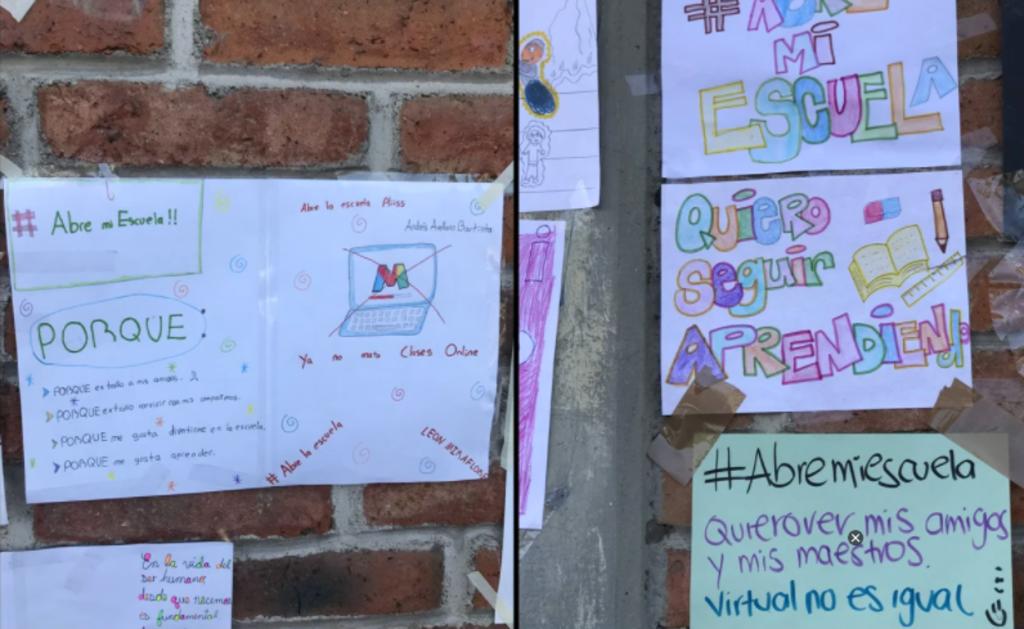 # Abre mi Escuela!!
PORQUE
PORQUE extraño a mis amigos.
PORQUE extraño convivir con mis compañeros.
PORQUE me gusta divertirme en la escuela.
PORQUE me gusta aprender.
Abre la escuela Pliss
Andrés Avelino Bautista
M
Ya no mas Clases Online
# Abre la escuela
LEON MIRAFLORES
En la vida del
ser humano,
desde que nacemos
es fundamental
#ABRE
MI
ESCUELA
QUIERO
SEGUIR
APRENDIENdo
#Abremiescuela
Quiero ver mis amigos
y mis maestros.
Virtual no es igual